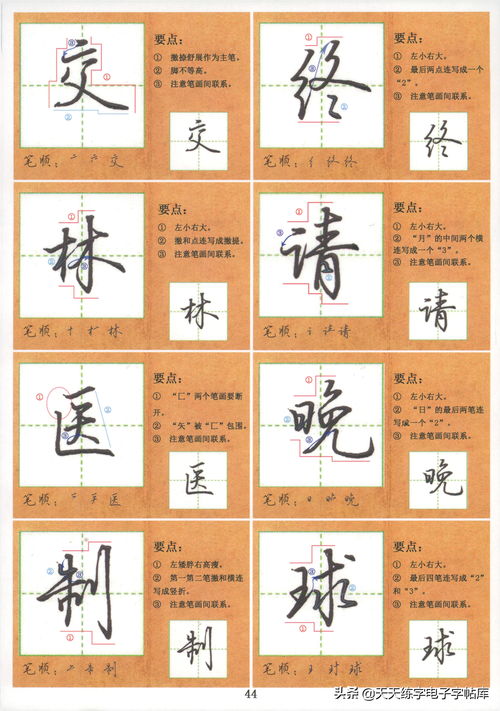 交
要点：
① 撇捺舒展作为主笔。
② 脚不等高。
③ 注意笔画间联系。
交
笔顺：亠 六 交
终
要点：
① 左小右大。
② 最后两点连写成一个
“2”。
③ 注意笔画间联系。
终
笔顺：纟 终 终
林
要点：
① 左小右大。
② 撇和点连写成撇提。
③ 注意笔画间联系。
林
笔顺：十 木 林
请
要点：
① 左小右大。
② “月”的中间两个横
连写成一个“3”。
③ 注意笔画间联系。
请
笔顺：讠 请 请
医
要点：
① “匚”两个笔画要断
开。
② “矢”被“匚”包围。
③ 注意笔画间联系。
医
笔顺：医
晚
要点：
① 左小右大。
② “日”的最后两笔连
写成一个“2”。
③ 注意笔画间联系。
晚
笔顺：日 晚
制
要点：
① 左矮胖右高瘦。
② 第一第二笔撇和横连
写成竖折。
③ 注意笔画间联系。
制
笔顺：制
球
要点：
① 左小右大。
② 最后四笔连写成“2”
和“3”。
③ 注意笔画间联系。
球
笔顺：王 球
44
头条@天天练字电子字帖库